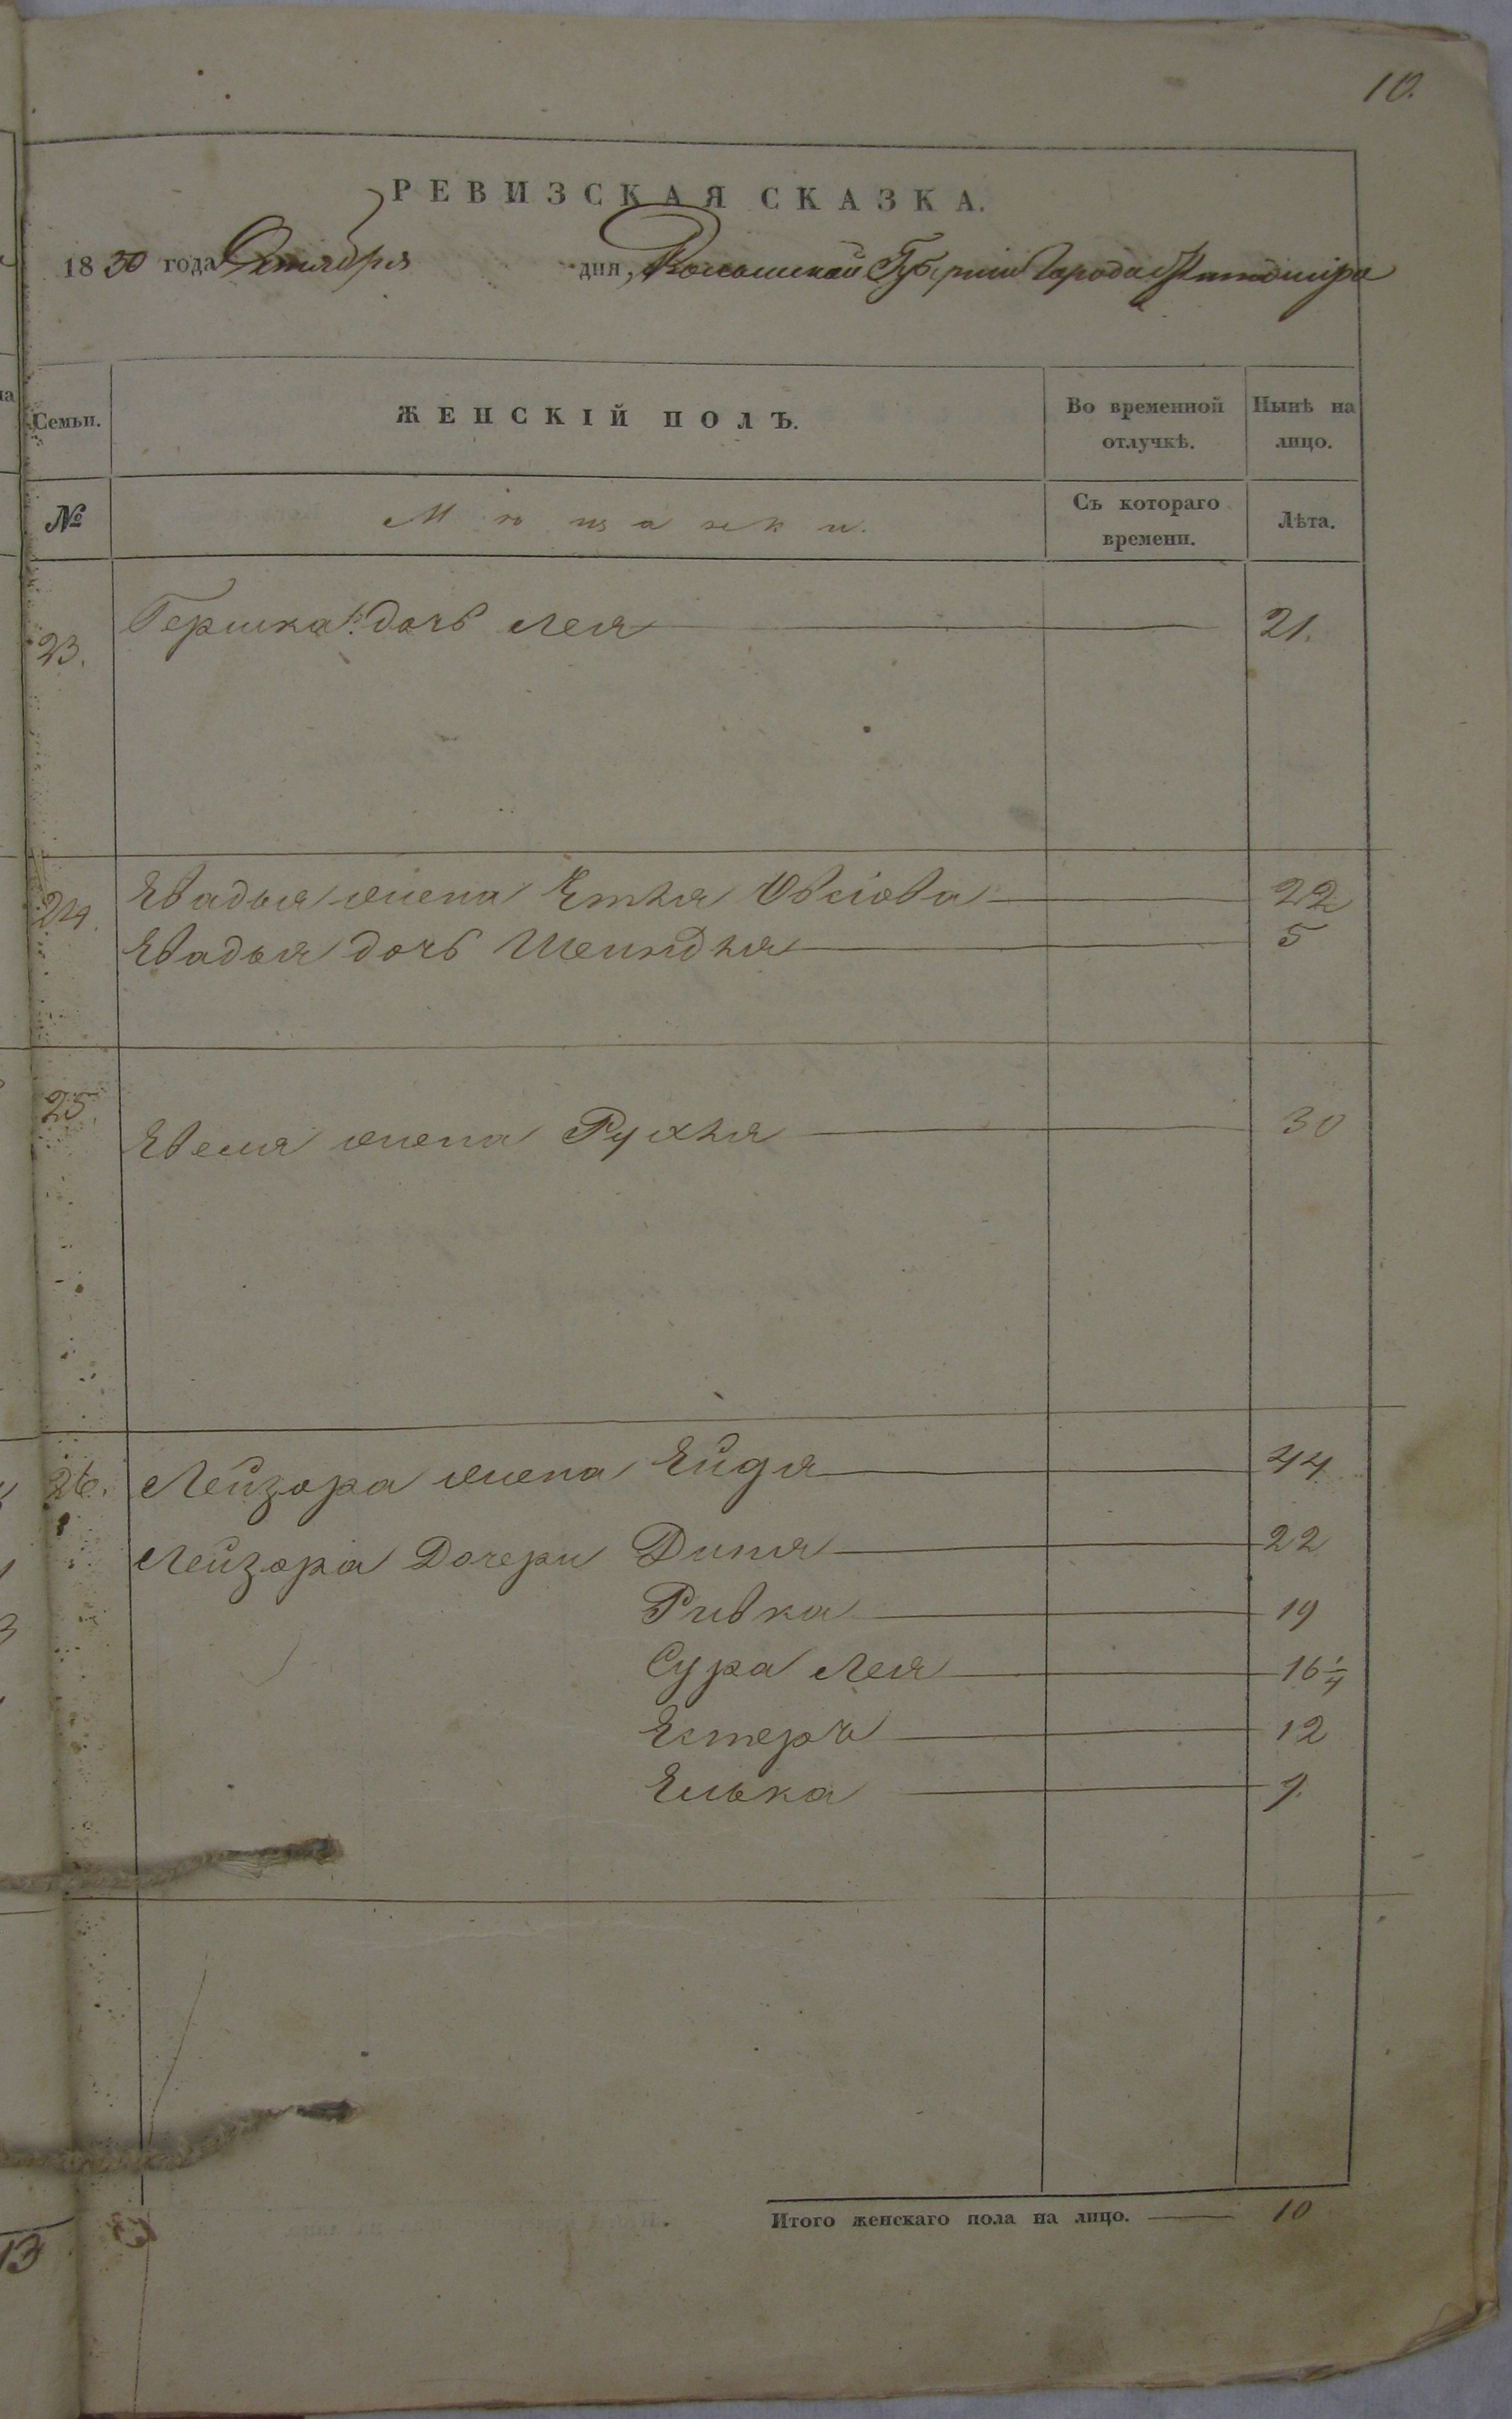 10.
РЕВИЗСКАЯ СКАЗКА.
1850 года Октября дня, Волынской Губерніи Города Житоміра
Семьи.
ЖЕНСКІЙ ПОЛЪ.
Во временной отлучкѣ.
Нынѣ на лицо.
№
Мѣщанки.
Съ котораго времени.
Лѣта.
23. Гершка дочь Лея 21.
24. Евадья жена Етля Овсіова 22
Евадья дочь Шейндля 5
25. жена Рухля 30
26. Лейзора жена Ейдя 44
Лейзора Дочери Диня 22
Ривка 19
Сура Лея 16 1/4
Естеръ 12
Елька 9.
Итого женскаго пола на лицо. 10
13